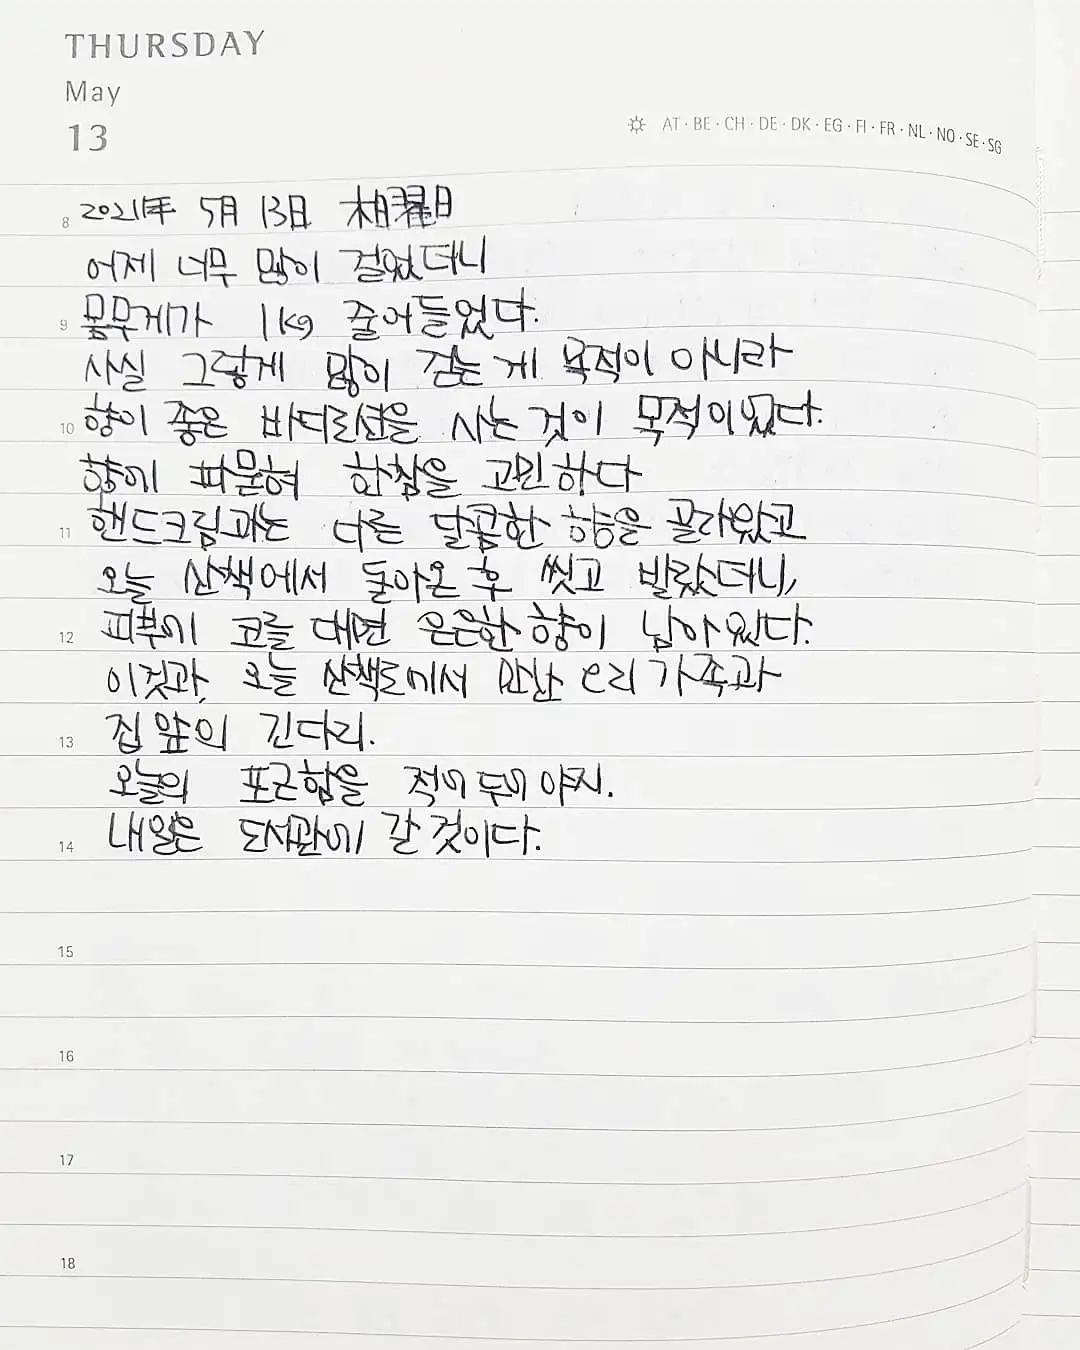 THURSDAY
May
13
AT · BE · CH · DE · DK · EG · FI · FR · NL · NO · SE · SG
8 2021年 5月 13日 木曜日
어제 너무 많이 걸었더니
9 몸무게가 1kg 줄어들었다.
사실 그렇게 많이 걷는 게 목적이 아니라
10 향이 좋은 바디로션을 사는 것이 목적이었다.
향에 파묻혀 한참을 고민하다
11 핸드크림과는 다른 달콤한 향을 골라왔고
오늘 산책에서 돌아온 후 씻고 발랐더니,
12 피부에 코를 대면 은은한 향이 남아 있다.
이것과, 오늘 산책로에서 만난 오리 가족과
13 집 앞의 긴 다리.
오늘의 포근함을 적어 두어야지.
14 내일은 도서관에 갈 것이다.
15
16
17
18